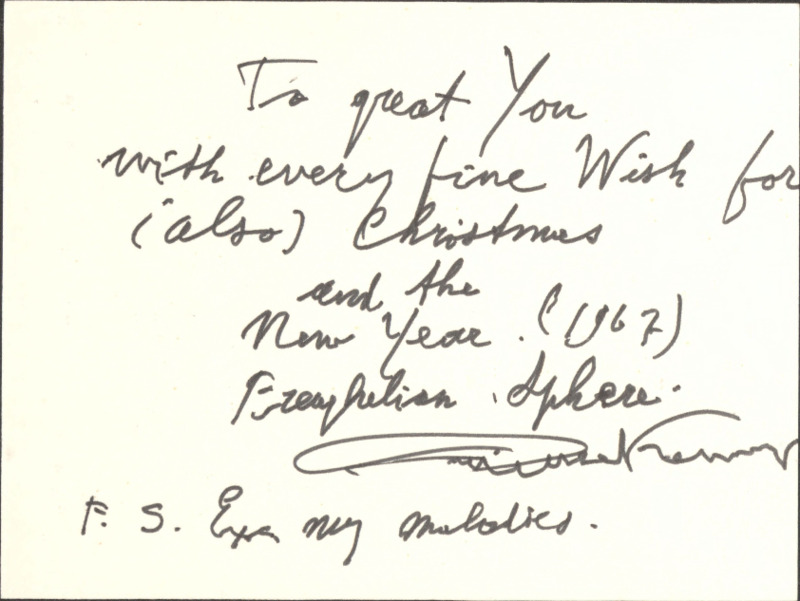 To great You
with every fine Wish for
(also) Christmas
and the
New Year. (1967)
Sphere.
P. S. my melodies.